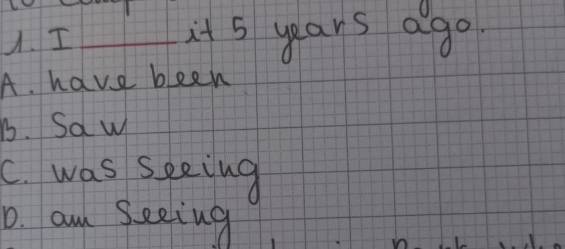 1. I ______ it 5 years ago.
A. have been
B. Saw
C. was Seeing
D. am Seeing